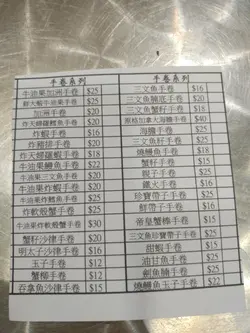 手卷系列
牛油果加洲手卷 $25
鮮大蝦牛油果手卷 $25
加洲手卷 $20
炸天婦羅鱈魚手卷 $20
炸蝦手卷 $16
炸豬排手卷 $20
炸天婦羅蝦手卷 $18
牛油果鰻魚手卷 $22
牛油果三文魚手卷 $20
牛油果炸蝦手卷 $20
牛油果炸鱈魚手卷 $25
炸軟殼蟹手卷 $25
牛油果炸軟殼蟹手卷 $30
蟹籽沙律手卷 $20
明太子沙律手卷 $16
玉子手卷 $12
蟹柳手卷 $12
吞拿魚沙律手卷 $15
手卷系列
三文魚手卷 $16
三文魚腩底手卷 $20
三文魚蟹籽手卷 $18
原格加拿大海膽手卷 $40
海膽手卷 $25
三文魚籽手卷 $25
燒鰻魚手卷 $18
蟹籽手卷 $15
親子手卷 $25
鐵火手卷 $16
珍寶帶子手卷 $25
鮮帶子手卷 $16
帝皇蟹棒手卷 $15
三文魚珍寶帶子手卷 $25
甜蝦手卷 $15
油甘魚手卷 $25
劍魚腩手卷 $25
燒鰻魚玉子手卷 $22